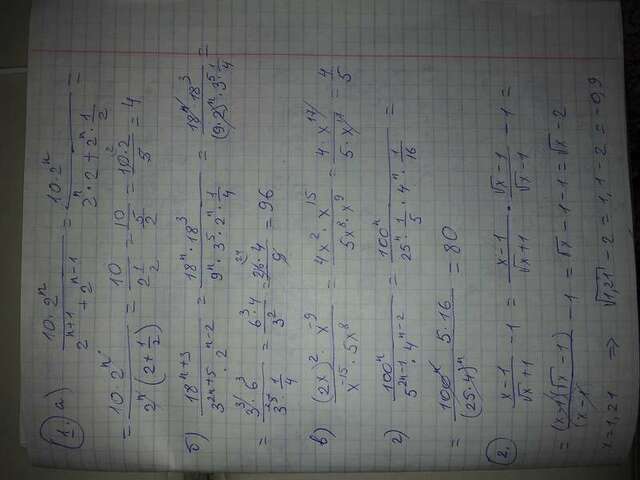 1. а) 10·2ⁿ/(2ⁿ⁺¹ + 2ⁿ⁻¹) = 10·2ⁿ/(2ⁿ·2 + 2ⁿ·1/2) =
= 10·2ⁿ/(2ⁿ(2 + 1/2)) = 10/(2 1/2) = 10/(5/2) = 10·2/5 = 4
б) 18ⁿ⁺³/(3²ⁿ⁺⁵·2ⁿ⁻²) = 18ⁿ·18³/(9ⁿ·3⁵·2ⁿ·1/4) = 18ⁿ·18³/((9·2)ⁿ·3⁵·1/4) =
= 3³·6³/(3⁵·1/4) = 6³·4/3² = 216·4/9 = 96
в) (2x)²·x⁻⁹/(x⁻¹⁵·5x⁸) = 4x²·x¹⁵/(5x⁸·x⁹) = 4·x¹⁷/(5·x¹⁷) = 4/5
г) 100ⁿ/(5²ⁿ⁻¹·4ⁿ⁻²) = 100ⁿ/(25ⁿ·1/5·4ⁿ·1/16) =
= 100ⁿ 5·16/(25·4)ⁿ = 80
2. (x-1)/(√x+1) - 1 = (x-1)/(√x+1) · (√x-1)/(√x-1) - 1 =
= (x-1)(√x-1)/(x-1) - 1 = √x - 1 - 1 = √x - 2
x = 1,21 ⇒ √1,21 - 2 = 1,1 - 2 = -0,9